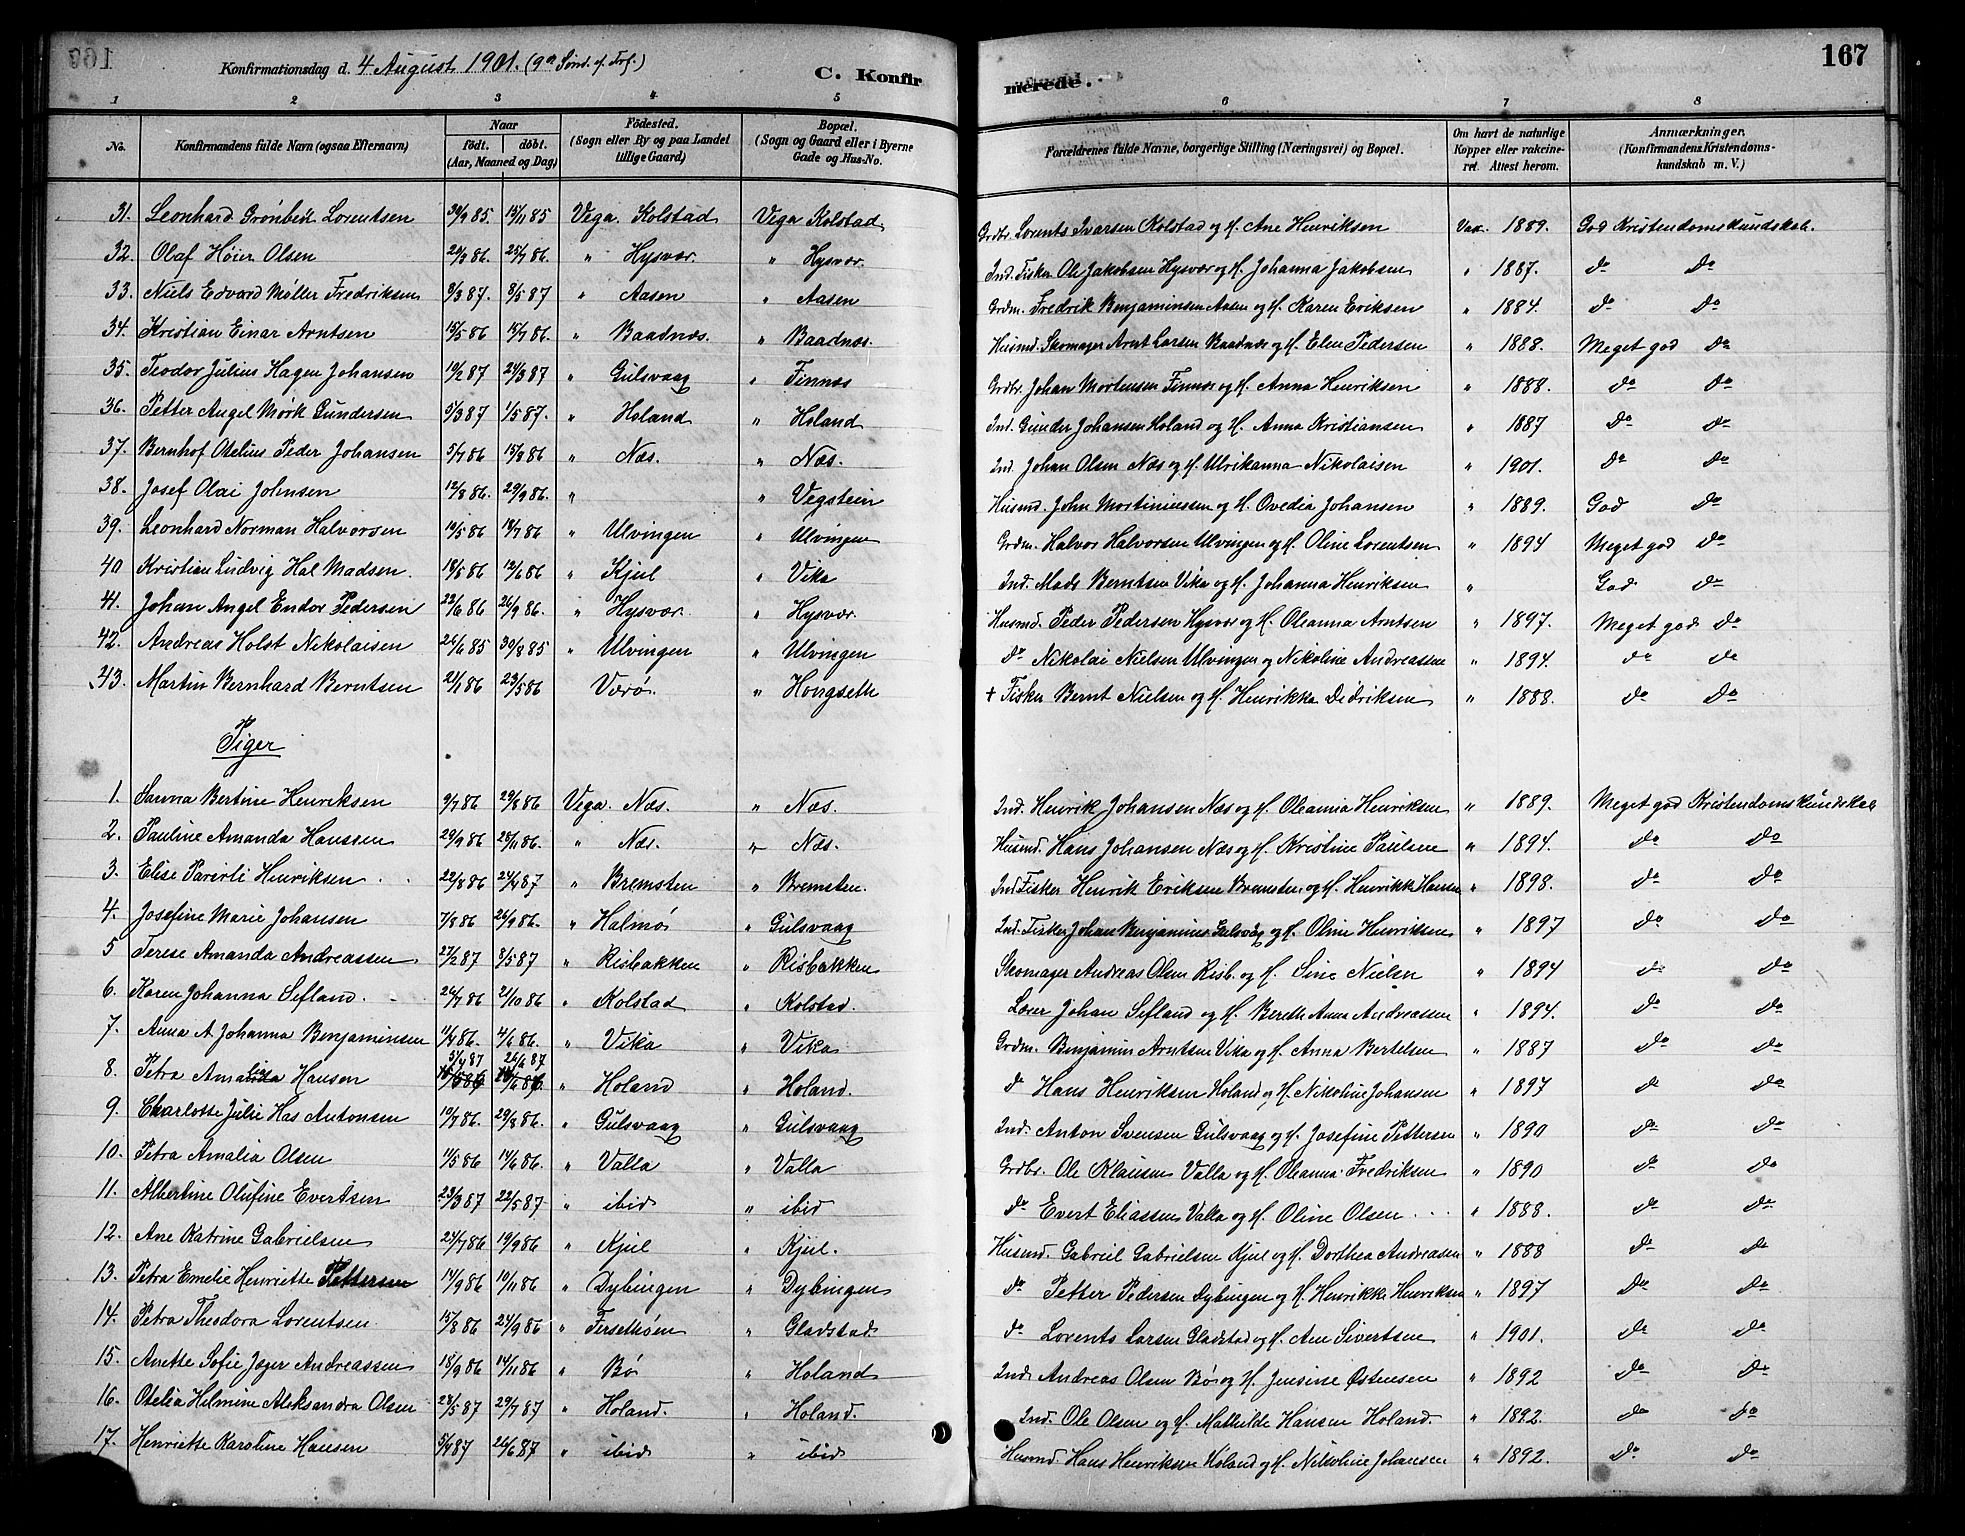 Konfirmationsdag d. 4 August 1901. (9de Sønd. e. Tref.)
C. Konfirmerede.
167
1 2 3 4 5 6 7 8
No. Konfirmandens fulde Navn (ogsaa Efternavn) Naar født. døbt. (Aar, Maaned og Dag) Fødested. (Sogn eller By og paa Landet tillige Gaard) Bopæl. (Sogn og Gaard eller i Byerne Gade og Hus-No. Forældrenes fulde Navne, borgerlige Stilling (Næringsvei) og Bopæl. Om havt de naturlige Kopper eller vakcineret. Attest herom. Anmærkninger. (Konfirmandens Kristendomskundskab m. V.)
31. Leonhard Grönbeck Lorentsen 30/9 85. 15/11 85 Vega. Kolstad Vega Kolstad Grdbr. Lorents Ivarsen Kolstad og H. Ane Henriksen Vax. 1889. God Kristendomskundskab.
32. Olaf Höier Olsen 20/3 86. 25/7 86. " Hysvær " Hysvær. Ind. Fisker Ole Jakobsen Hysvær og H. Johanna Jakobsen " 1887. do do
33. Niels Edvard Møller Fredriksen 8/3 87. 8/5 87 " Aasen " Aasen Grdm. Fredrik Benjaminsen Aasen og H. Karen Eriksen " 1884. do do
34. Kristian Einar Arntsen 15/5 86 15/7 86. " Baadnæs. " Baadnæs. Husmd. Skomager Arnt Larsen Baadnæs og H. Elen Pedersen " 1888. Meget god do
35. Teodor Julius Hagen Johansen 19/2 87 24/3 87 " Gulsvaag " Finnæs Grdbr. Johan Mortensen Finnæs og H. Anna Henriksen " 1888. do do
36. Petter Angel Mørk Gundersen 5/3 87 1/5 87. " Holand " Holand Ind. Gunder Johansen Holand og H. Anna Kristiansen " 1887 do do
37. Bernhof Otelius Peder Johansen 5/7 86 15/8 86 " Næs. " Næs. Ind. Johan Olsen Næs og H. Ulrikanna Nikolaisen " 1901. do do
38. Josef Olai Johnsen 12/8 86. 29/9 86. " " Vegstein Husmd. John Mortiniussen og H. Ovedia Johansen " 1889. God do
39. Leonhard Norman Halvorsen 10/5 86 18/7 86 " Ulvingen " Ulvingen Grdm. Halvor Halvorsen Ulvingen og H. Oline Lorentsen " 1894 Meget god do
40 Kristian Ludvig Hal Madsen. 18/5 86 12/6 86 " Kjul " Vika Ind. Mads Berntsen Vika og H. Johanna Henriksen " God do
41. Johan Angel Endor Pedersen 22/6 86 26/9 86. " Hysvær. " Hysvær. Husmd. Peder Pedersen Hysvær og H. Oleanna Arntsen " 1897. Meget god do
42. Andreas Holst Nikolaisen 26/6 85 30/8 85 " Ulvingen " Ulvingen do Nikolai Nielsen Ulvingen og Nikoline Andreassen " 1894. do do
43. Martin Bernhard Berntsen 21/1 86 23/5 86 " Værø. " Hongseth + Fisker Bernt Nielsen og H. Henrikka Didriksen " 1888. do do
Piger
1. Sanna Bertine Henriksen 9/7 86 29/8 86 Vega. Næs. " Næs. Ind. Henrik Johansen Næs og H. Oleanna Henriksen " 1889. Meget god Kristendomskundskab
2. Pauline Amanda Hanssen 29/9 86 28/11 86. " Næs. " Næs. Husmd. Hans Johansen Næs og H. Kristine Paulsen " 1894. do do
3. Elise Henriksen 22/8 86 24/4 87 " Bremsten " Bremsten. Ind. Fisker Henrik Eriksen Bremsten og H. Henrikke Hansen " 1898. do do
4. Josefine Marie Johansen 7/8 86 26/9 86. " Halmø " Gulsvaag Ind. Fisker Johan Benjaminsen Gulsvåg og H. Oline Henriksen " 1897 do do
5 Terese Amanda Andreassen. 27/2 87 8/5 87 " Risbakken " Risbakken Skomager Andreas Olsen Risb. og H. Sine Nielsen " 1894 do do
6. Karen Johanna Sefland. 26/7 86 21/10 86 " Kolstad " Kolstad. Lærer Johan Sefland og H. Bereth Anna Andreassen " 1894. do do
7. Anna A Johanna Benjaminsen 11/4 86. 4/6 86. " Vika " Vika Grdm. Benjamin Arntsen Vika og H. Anna Bertelsen " 1887 do do
8. Petra Amalia Hansen 5/4 87 26/6 87 " Holand " Holand. do Hans Henriksen Holand og H. Nikoline Johansen " 1897 do do
9. Charlotte Julie Has Antonsen 10/7 86. 29/8 86. " Gulsvaag " Gulsvaag Ind. Anton Svensen Gulsvaag og H. Josefine Pettersen " 1890 do do
10. Petra Amalia Olsen 11/5 86 14/6 86. " Valla " Valla Grdbr. Ole Klausen Valla og H. Oleanna Fredriksen " 1890 do do
11. Albertine Olufine Evertsen 23/3 87 22/5 87 " ibid " ibid do Evert Eliassen Valla og H. Oline Olsen " 1888. do do
12. Ane Katrine Gabrielsen 24/7 86 19/9 86 " Kjul " Kjul. Husmd. Gabriel Gabrielsen Kjul og H. Dorthea Andreasen " 1888 do do
13. Petra Emelie Henriette Pettersen 14/9 86 10/11 86 " Dybingen " Dybingen do Petter Pedersen Dybingen og H. Henrikke Henriksen " 1897 do do
14. Petra Theodora Lorentsen 15/8 86 24/9 86 " " Gladstad do Lorents Larsen Gladstad og H. Ane Sivertsen " 1901. do do
15. Anette Sofie Jager Andreassen 18/9 86 14/11 86 " Bø " Holand Ind. Andreas Olsen Bø og H. Jensine Østensen " 1892 do do
16. Otelia Helmine Aleksandra Olsen 23/5 87 29/7 87 " Holand. " Holand. Ind. Ole Olsen og H. Mathilde Hansen Holand " 1892. do do
17. Henriette Karoline Hansen 5/4 87 26/6 87 " ibid " ibid Husmd. Hans Henriksen Holand og H. Nikoline Johansen " 1892. do do